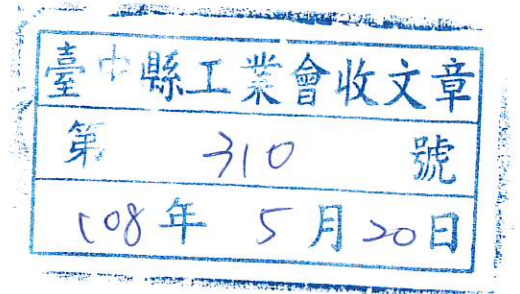 臺中縣工業會收文章
第 310 號
108年 5月20日